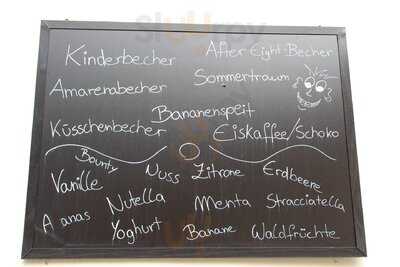 Kinderbecher After Eight-Becher
Amarenabecher Sommertraum
Bananenspeit
Küsschenbecher Eiskaffee/Schoko
Bounty
Vanille Nuss Zitrone Erdbeere
Nutella Menta Stracciatella
A anas Yoghurt Banane Waldfrüchte